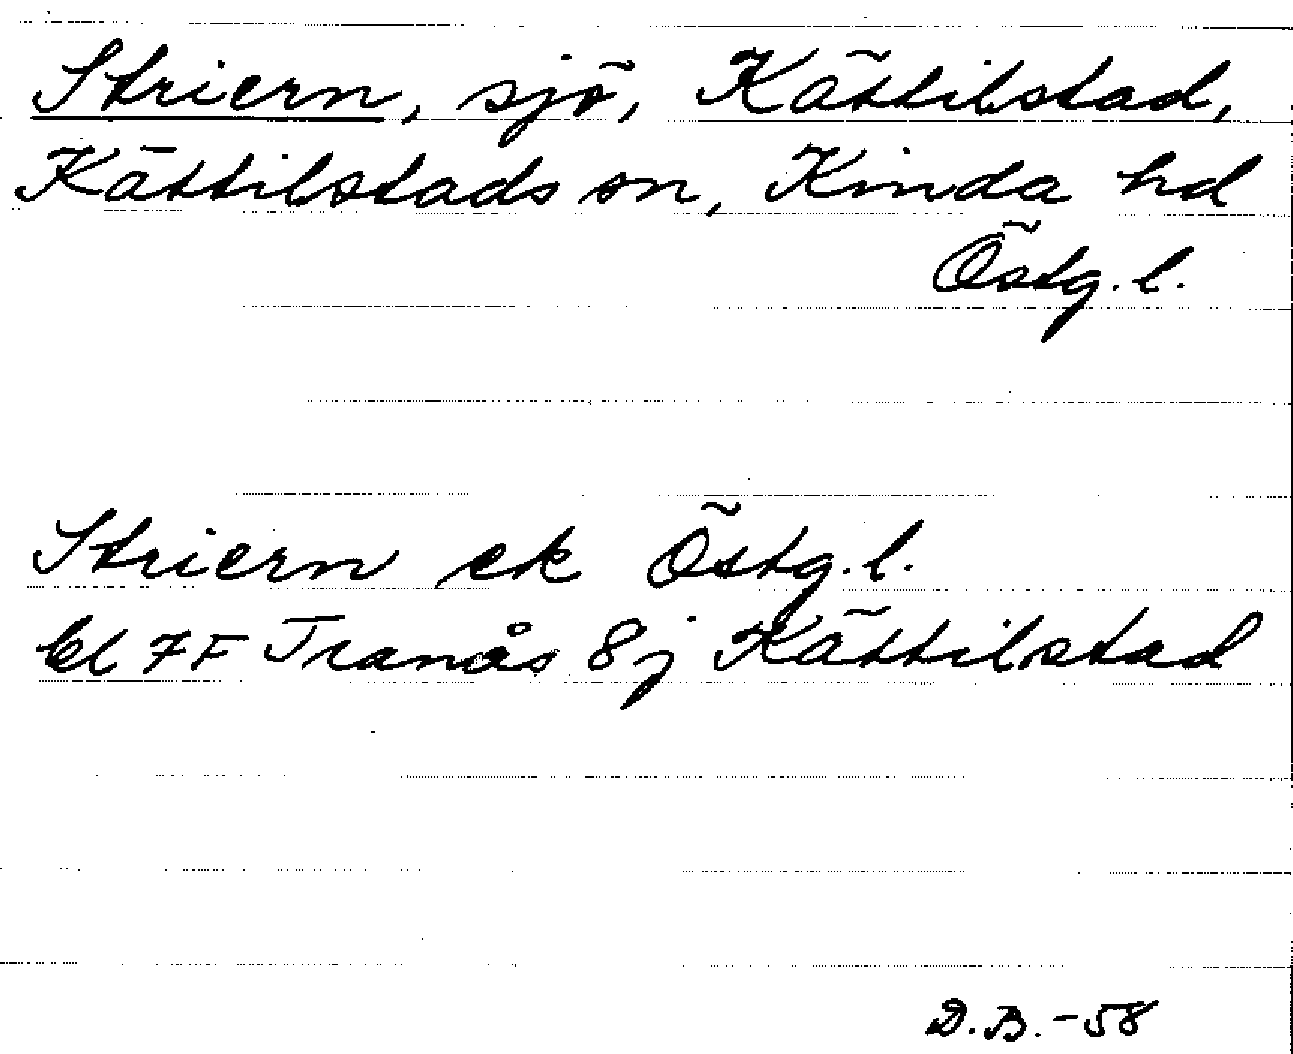 Striern, sjö, Kättilstad,
Kättilstads sn, Kinda hd
Östg. l.
Striern ek Östg. l.
bl 7F Tranås 8j Kättilstad
D.B. -58